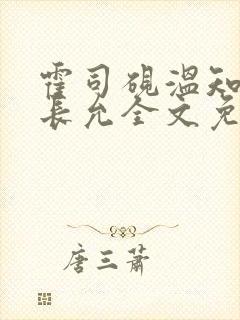 霍司砚温知
长允全文免
唐三萧